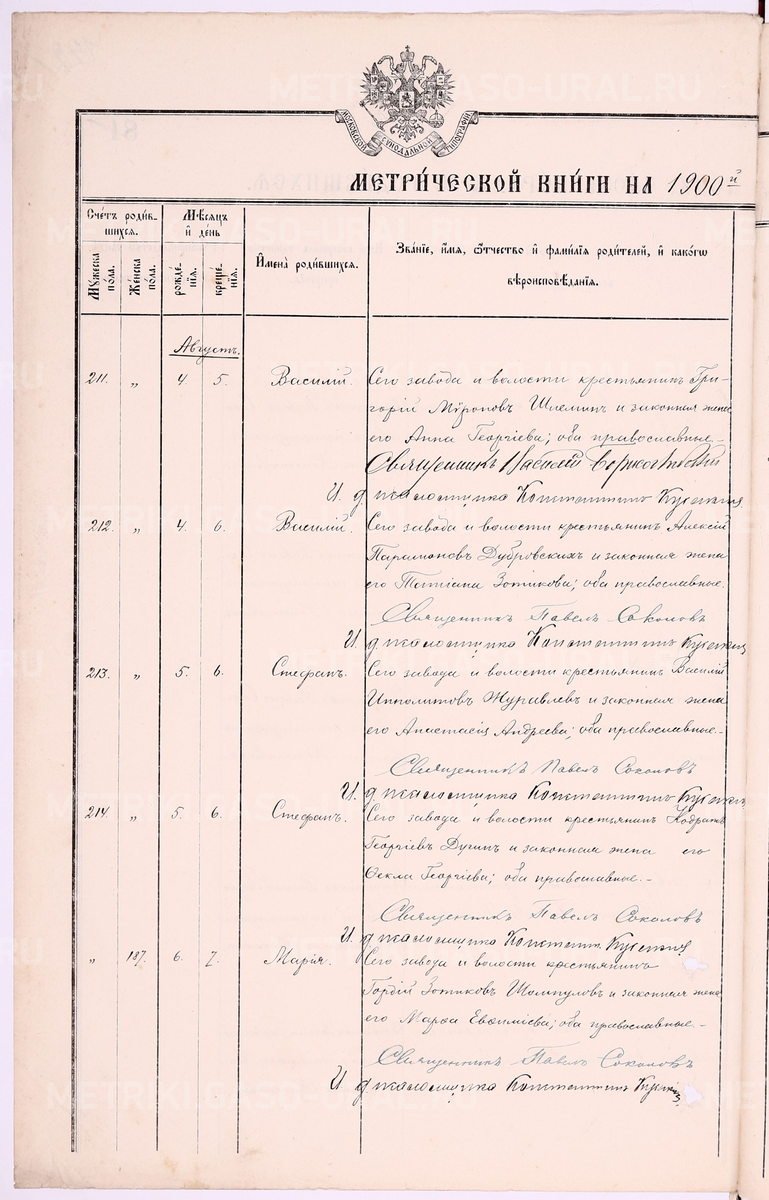 МОСКОВСКОЙ СѴНОДАЛЬНОЙ ТИПОГРАФІИ
МЕТРИ́ЧЕСКОЙ КНИ́ГИ НА 1900й
Сче́тъ роди́в-
шихся.
Му́жеска
по́ла.
Же́нска
по́ла.
Мѣ́сяцъ
и́ де́нь
рожде́-
нїя.
креще́-
нїя.
И҆мена̀ роди́вшихся.
Зва́нїе, и҆́мя, ѻ҆́тчество и҆ фами́лїя роди́телей, и҆ како́гѡ
вѣроисповѣ́данїя.
Августъ.
211. „ 4. 5. Василій. Сего завода и волости крестьянинъ Гри-
горій Мѵроновъ Шлеминъ и законная жена
его Анна Георгіева; оба православные.-
Священникъ Василій
И. д. псаломщика Константинъ
212. „ 4. 6. Василій. Сего завода и волости крестьянинъ Алексій
Парамоновъ Дубровскихъ и законная жена
его Татіана Зотикова; оба православные.
Священникъ Павелъ Соколовъ
И. д. псаломщика Константинъ
213. „ 5. 6. Стефанъ. Сего завода и волости крестьянинъ Василій
Ипполитовъ Журавлевъ и законная жена
его Анастасія Андреева; оба православные.-
Священникъ Павелъ Соколовъ
И. д. псаломщика Константинъ
214. „ 5. 6. Стефанъ. Сего завода и волости крестьянинъ Кодратъ
Георгіевъ Дугинъ и законная жена его
Ѳекла Георгіева; оба православные.-
Священникъ Павелъ Соколовъ
И. д. псаломщика Константинъ
„ 187. 6. 7. Марія. Сего завода и волости крестьянинъ
Гордій Зотиковъ и законная жена
его Марѳа Евѳиміева; оба православные.-
Священникъ Павелъ Соколовъ
И. д. псаломщика Константинъ